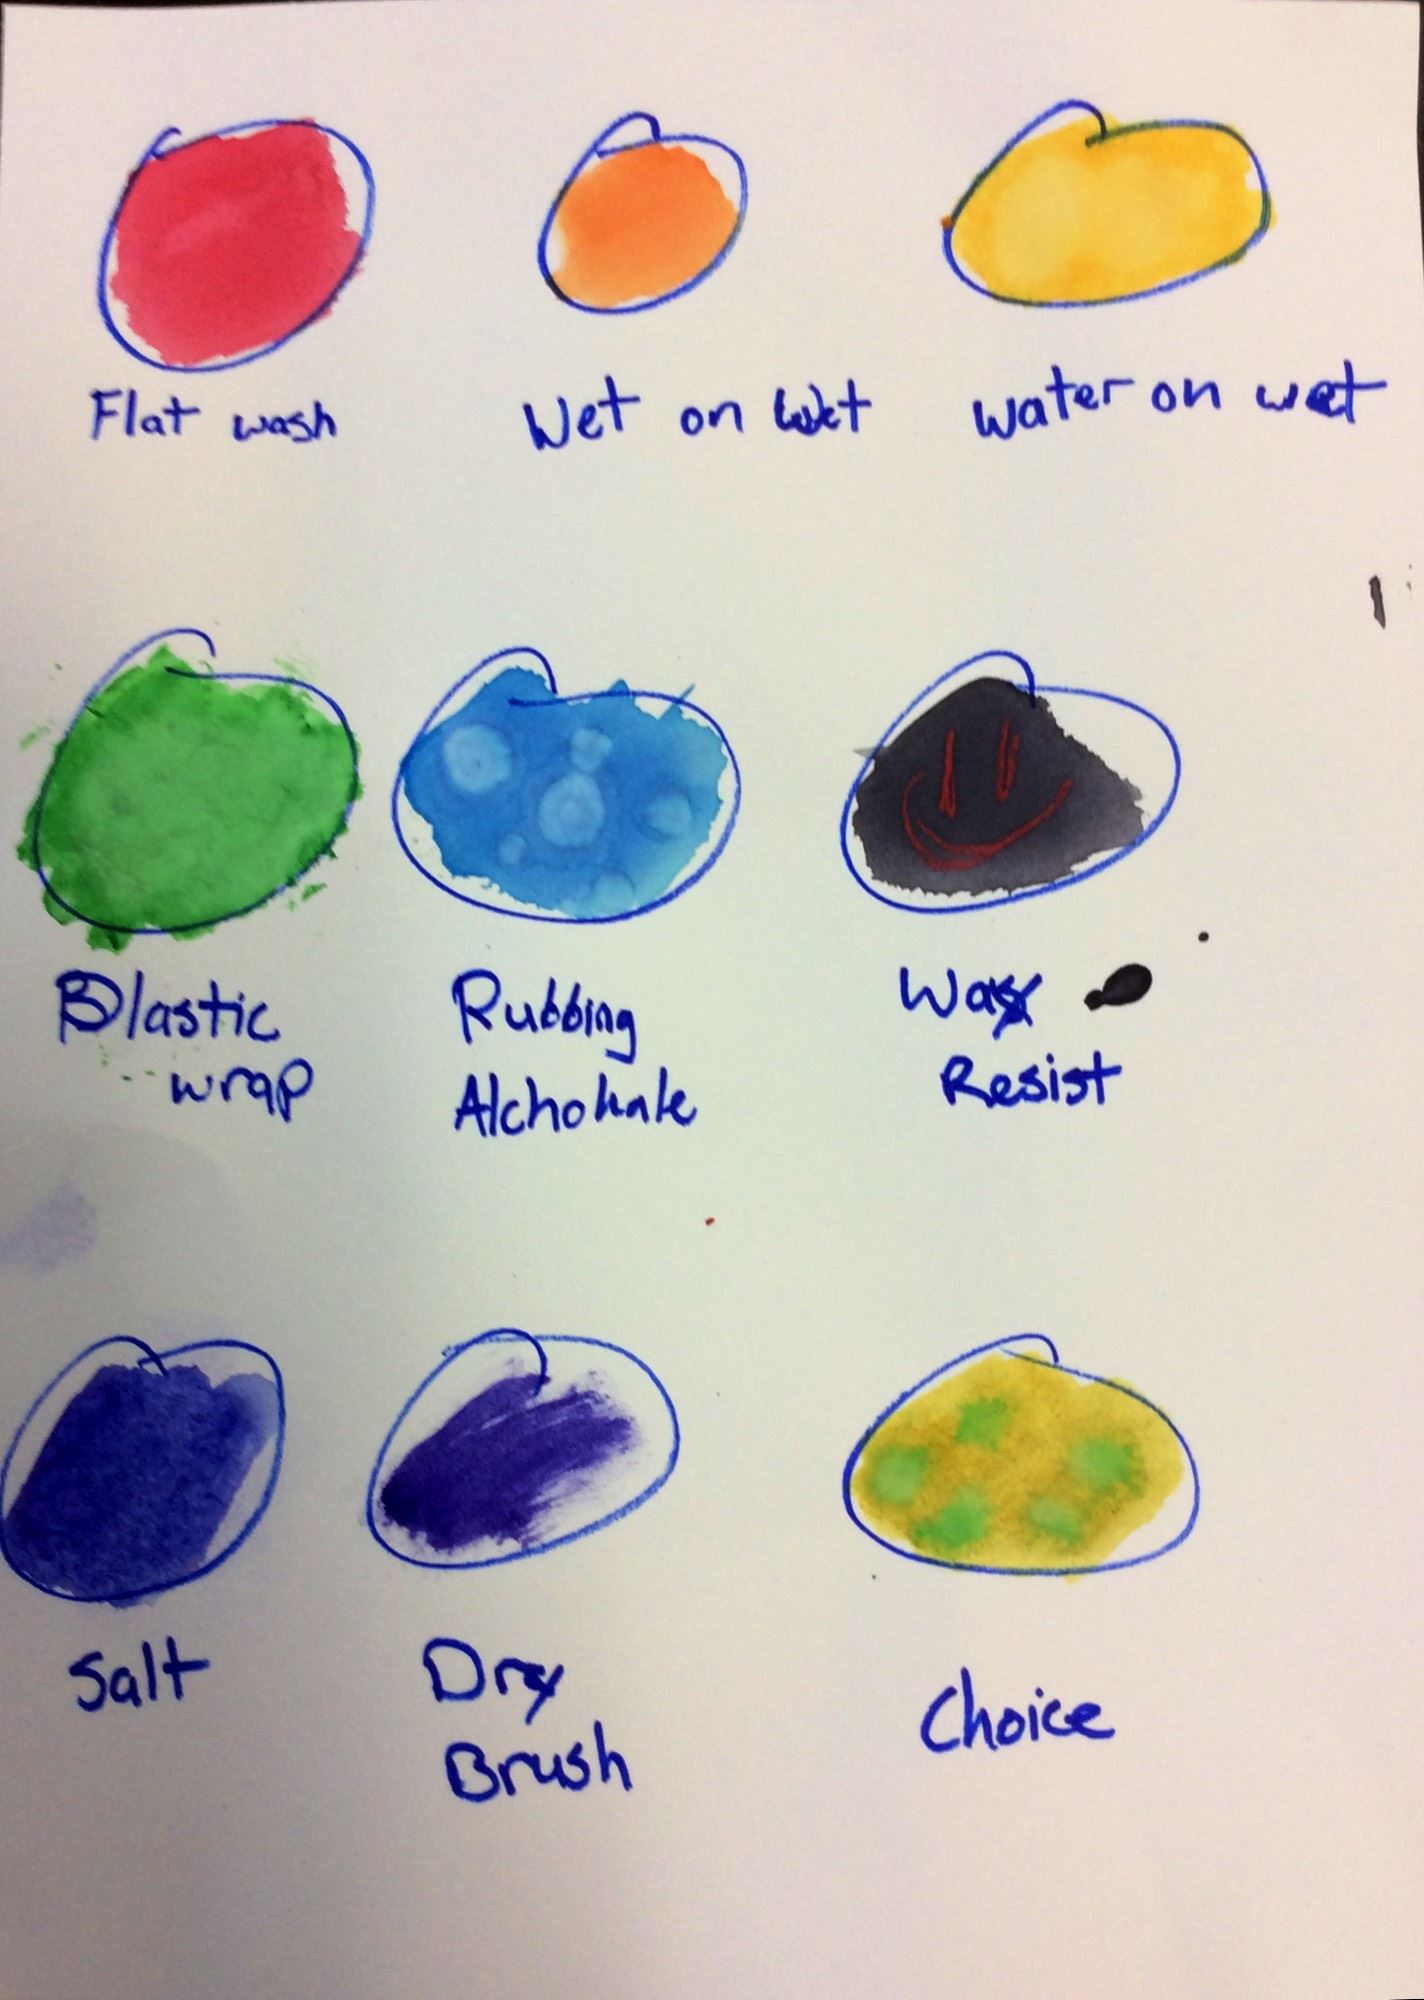 Flat wash
Wet on wet
water on wet
Plastic
wrap
Rubbing
Alchohale
Wax
Resist
Salt
Dry
Brush
Choice